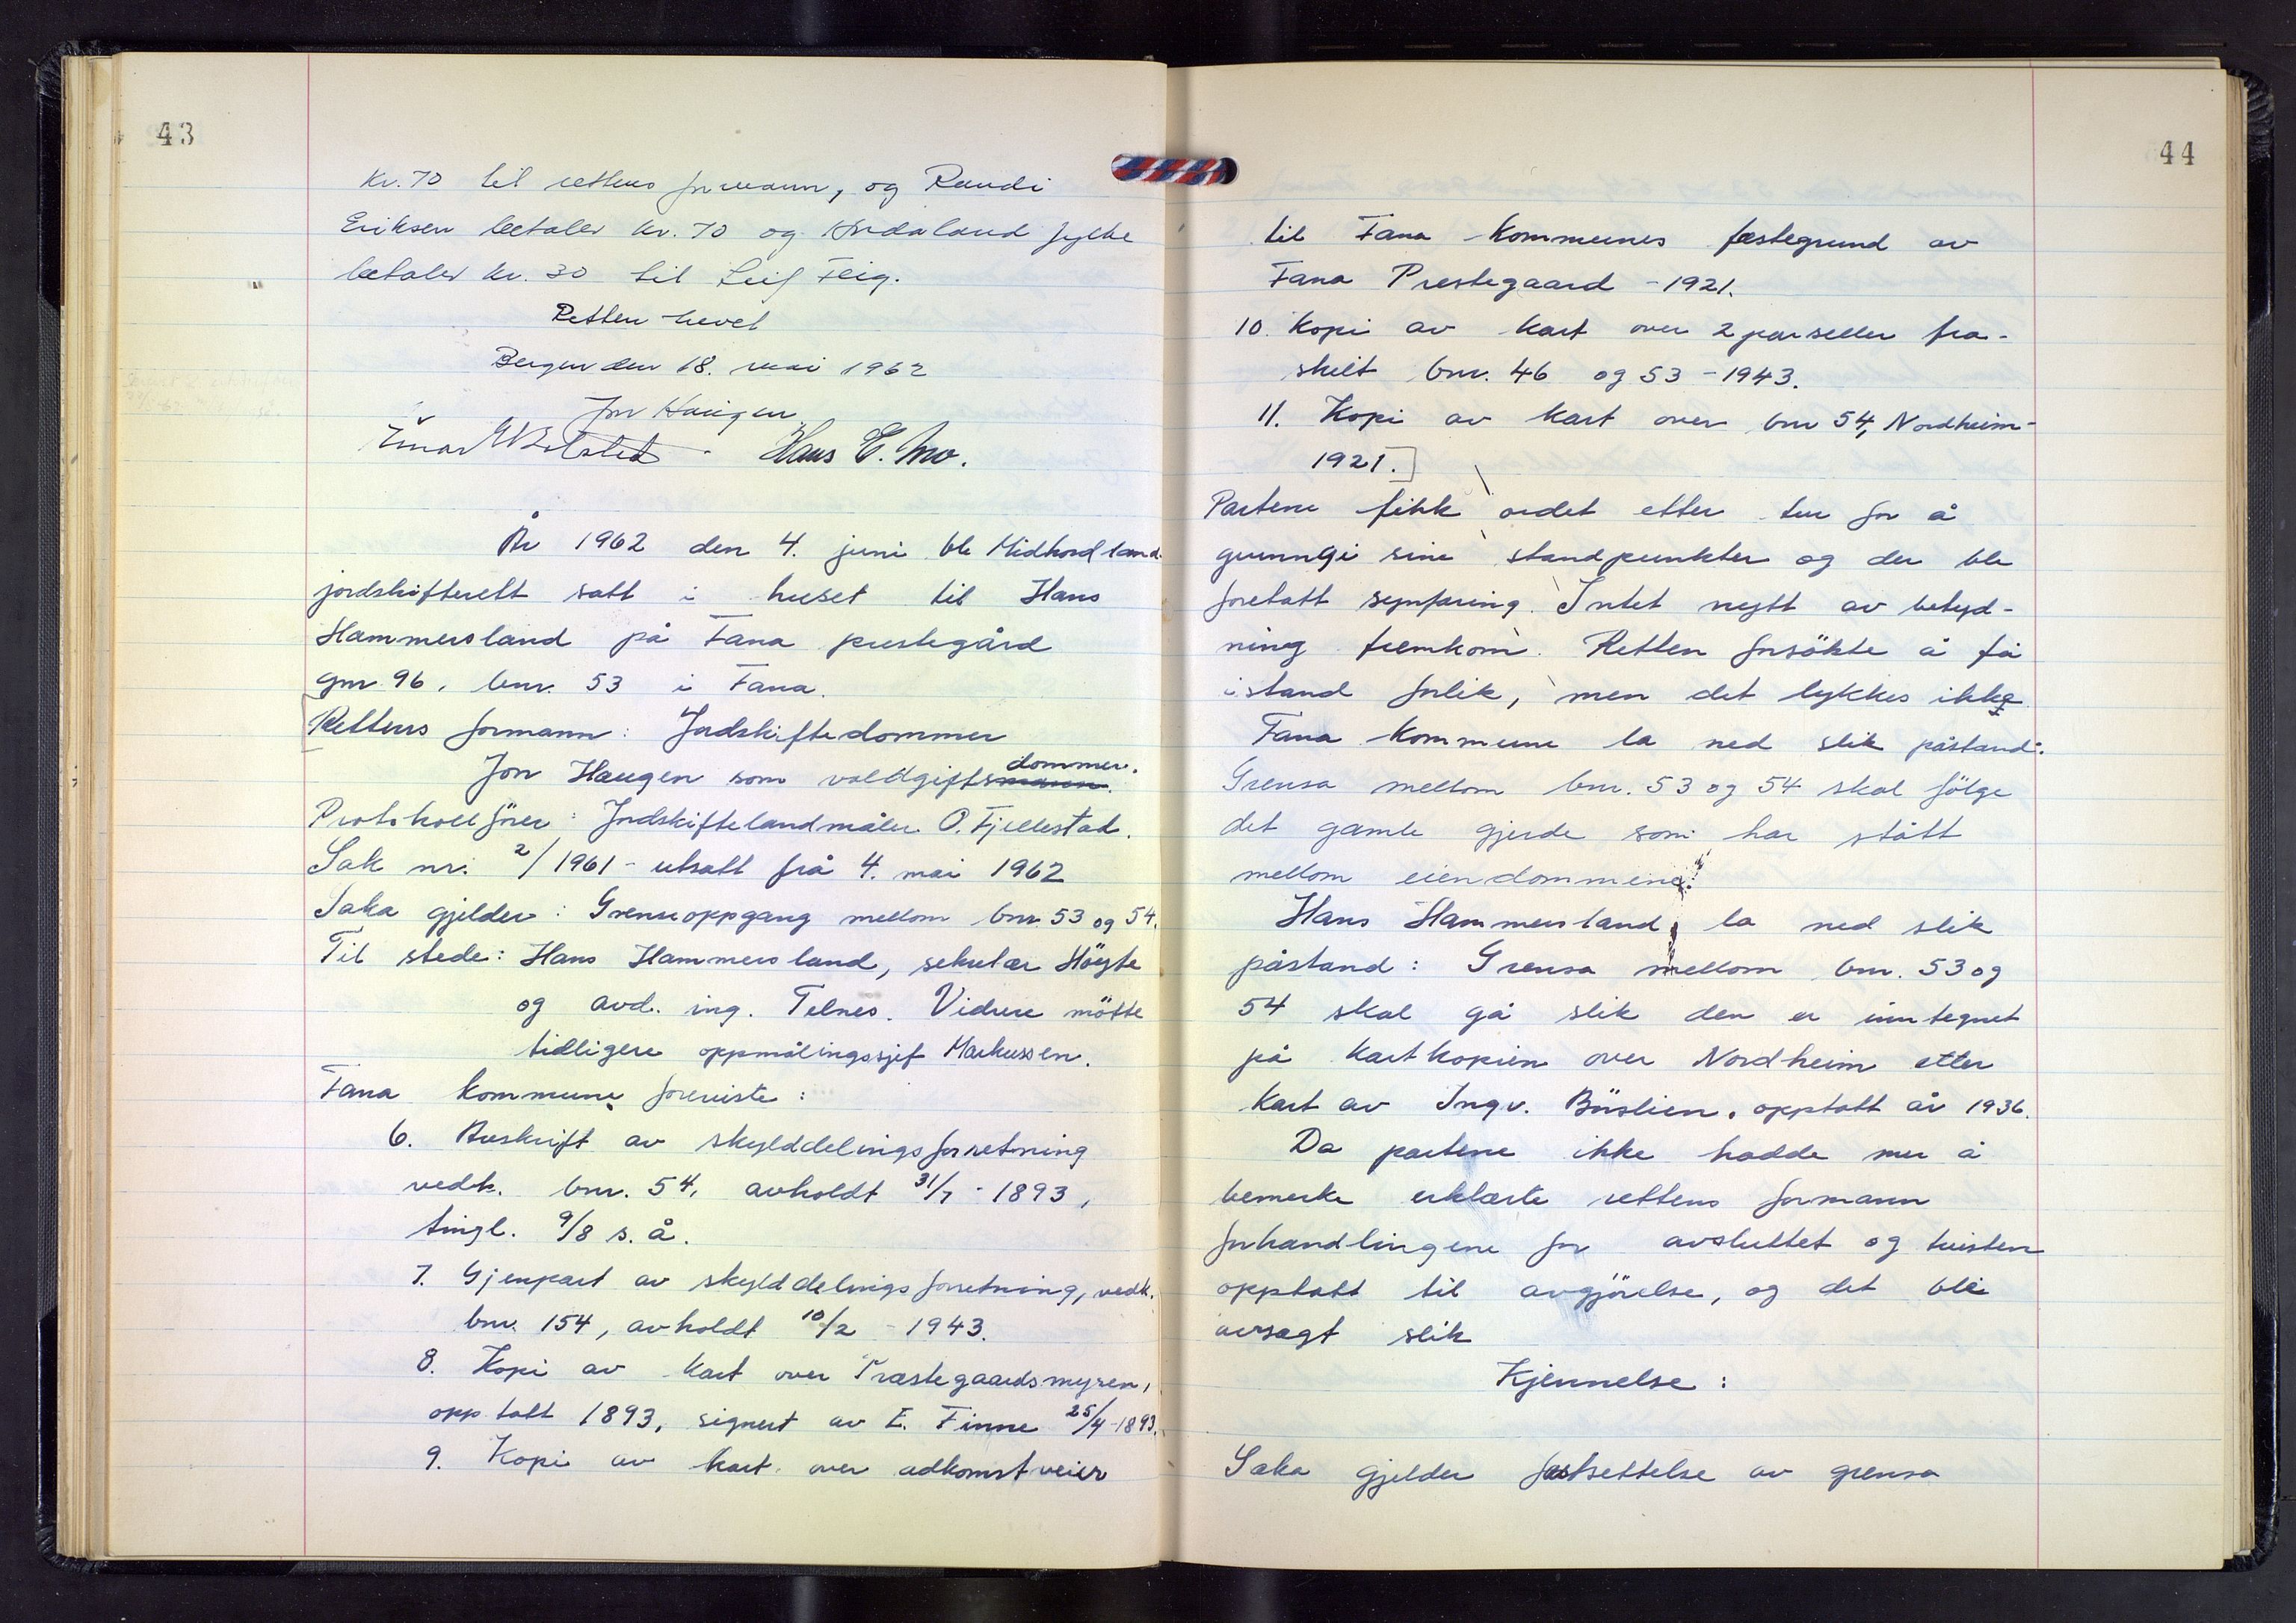 43
kr. 70 til rettens formann, og Randi
Eriksen betaler kr. 70 og Hordaland fylke
betaler kr. 30 til Leif Fleig.
Retten hevet
Bergen den 18. mai 1962
Jon Haugen
Einar Hans E. Mo.
År 1962 den 4. juni ble Midhordland
jordskifterett satt i huset til Hans
Hammersland på Fana prestegård
gnr. 96, bnr. 53 i Fana.
Rettens formann: Jordskiftedommer
dommer.
Jon Haugen som voldgiftsmann.
Protokollfører: Jordskiftelandmåler O. Fjellestad.
Sak nr. 2/1961 - utsatt frå 4. mai 1962
Saka gjelder: Grenseoppgang mellom bnr. 53 og 54.
Til stede: Hans Hammersland, sekretær Höyte
og avd. ing. Telnes. Videre mötte
tidligere oppmålingssjef Markussen.
Fana kommune foreviste:
6. Avskrift av skylddelingsforretning
vedk. bnr. 54, avholdt 31/7 - 1893,
tingl. 9/8 s. å.
7. Gjenpart av skylddelingsforretning, vedk.
bnr. 154, avholdt 10/2 - 1943.
8. Kopi av kart over Præstegaardsmyren,
opptatt 1893, signert av E. Finne 25/4-1893.
9. Kopi av kart over adkomstveier
44
til Fana kommunes festegrund av
Fana Prestegaard - 1921.
10. Kopi av kart over 2 parseller fra-
skilt bnr. 46 og 53 - 1943.
11. Kopi av kart over bnr 54, Nordheim -
1921.]
Partene fikk ordet etter tur for å
grunngi sine standpunkter og der ble
foretatt synfaring. Intet nytt av betyd-
ning fremkom. Retten forsökte å få
istand forlik, men det lykkes ikke.
Fana kommune la ned slik påstand:
Grensa mellom bnr. 53 og 54 skal fölge
det gamle gjerde som har stått
mellom eiendommene.
Hans Hammersland la ned slik
påstand: Grensa mellom bnr. 53 og
54 skal gå slik den er inntegnet
på kartkopien over Nordheim etter
kart av Ingv. Börslien, opptatt år 1936.
Da partene ikke hadde mer å
bemerke erklærte rettens formann
forhandlingene for avsluttet og tvisten
opptatt til avgjörelse, og det ble
avsagt slik
Kjennelse:
Saka gjelder fastsettelse av grensa